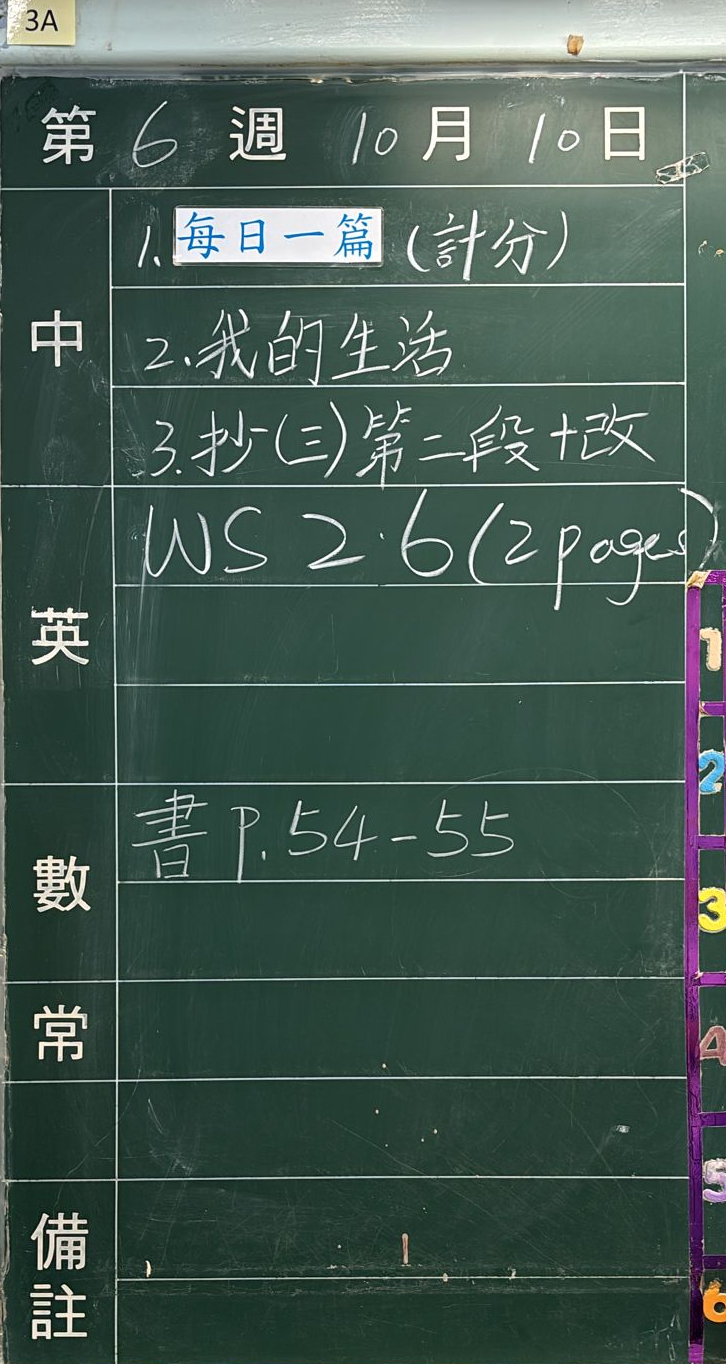 3A
第 6 週 10 月 10 日
中
1. 每日一篇 (計分)
2. 我的生活
3. 抄(三)第二段+改
英
WS 2.6 (2 pages)
數
書 P. 54-55
常
備註
1
2
3
4
5
6